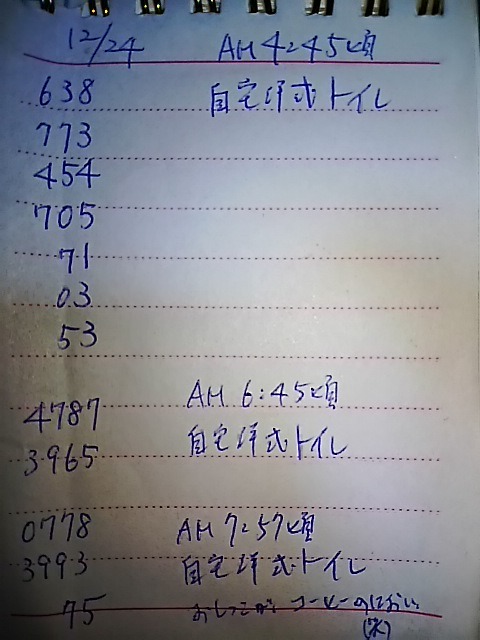 12/24 AM 4:45頃
638 自宅洋式トイレ
773
454
705
71
03
53
4787 AM 6:45頃
3965 自宅洋式トイレ
0778 AM 7:57頃
3993 自宅洋式トイレ
75 おしっこがコーヒーのにおい
(水)